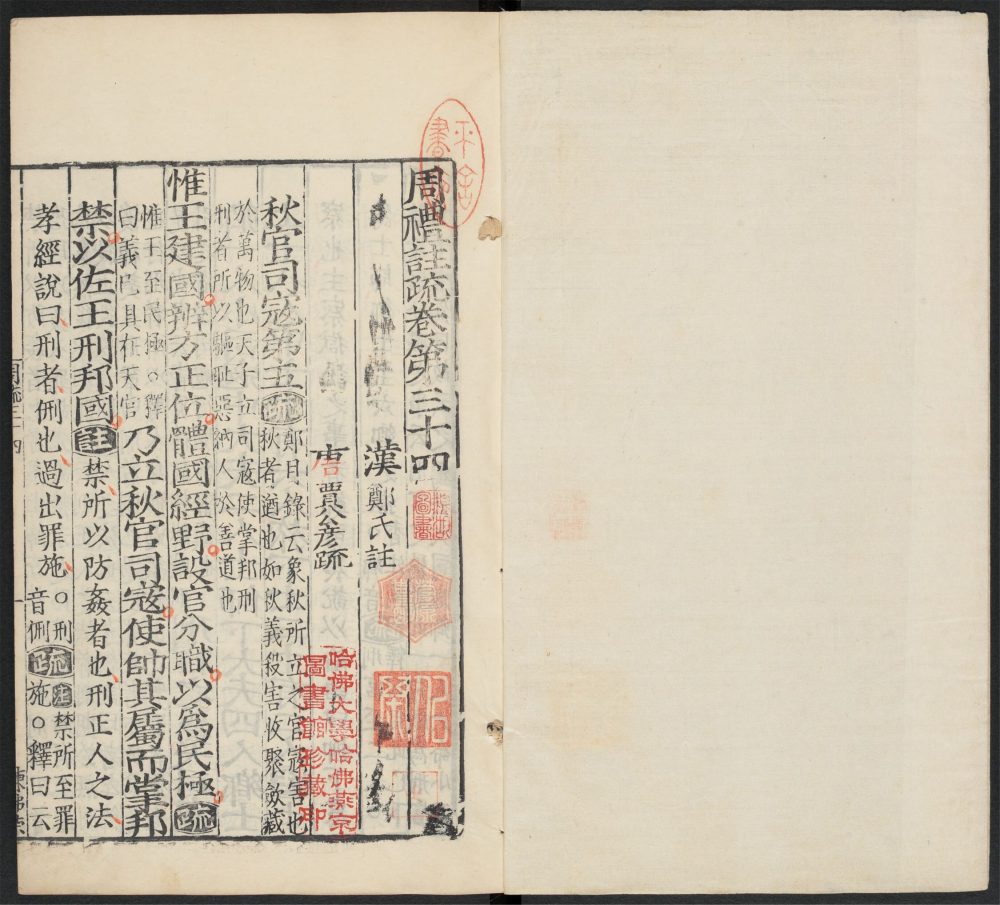 周禮註疏卷第三十四
漢鄭氏註
唐賈公彥疏
秋官司寇第五疏鄭目錄云象秋所立之官寇害也
秋者遒也如秋義殺害收聚斂藏
於萬物也天子立司寇使掌邦刑
刑者所以驅恥惡納人於善道也
惟王建國辨方正位體國經野設官分職以為民極疏
惟王至民極○釋
曰義已具在天官
乃立秋官司寇使帥其屬而掌邦
禁以佐王刑邦國註禁所以防姦者也刑正人之法
孝經說曰刑者侀也過出罪施○刑
音侀
疏註禁所至罪
施○釋曰云
哈佛大學哈佛燕京
圖書館珍藏印
圖書